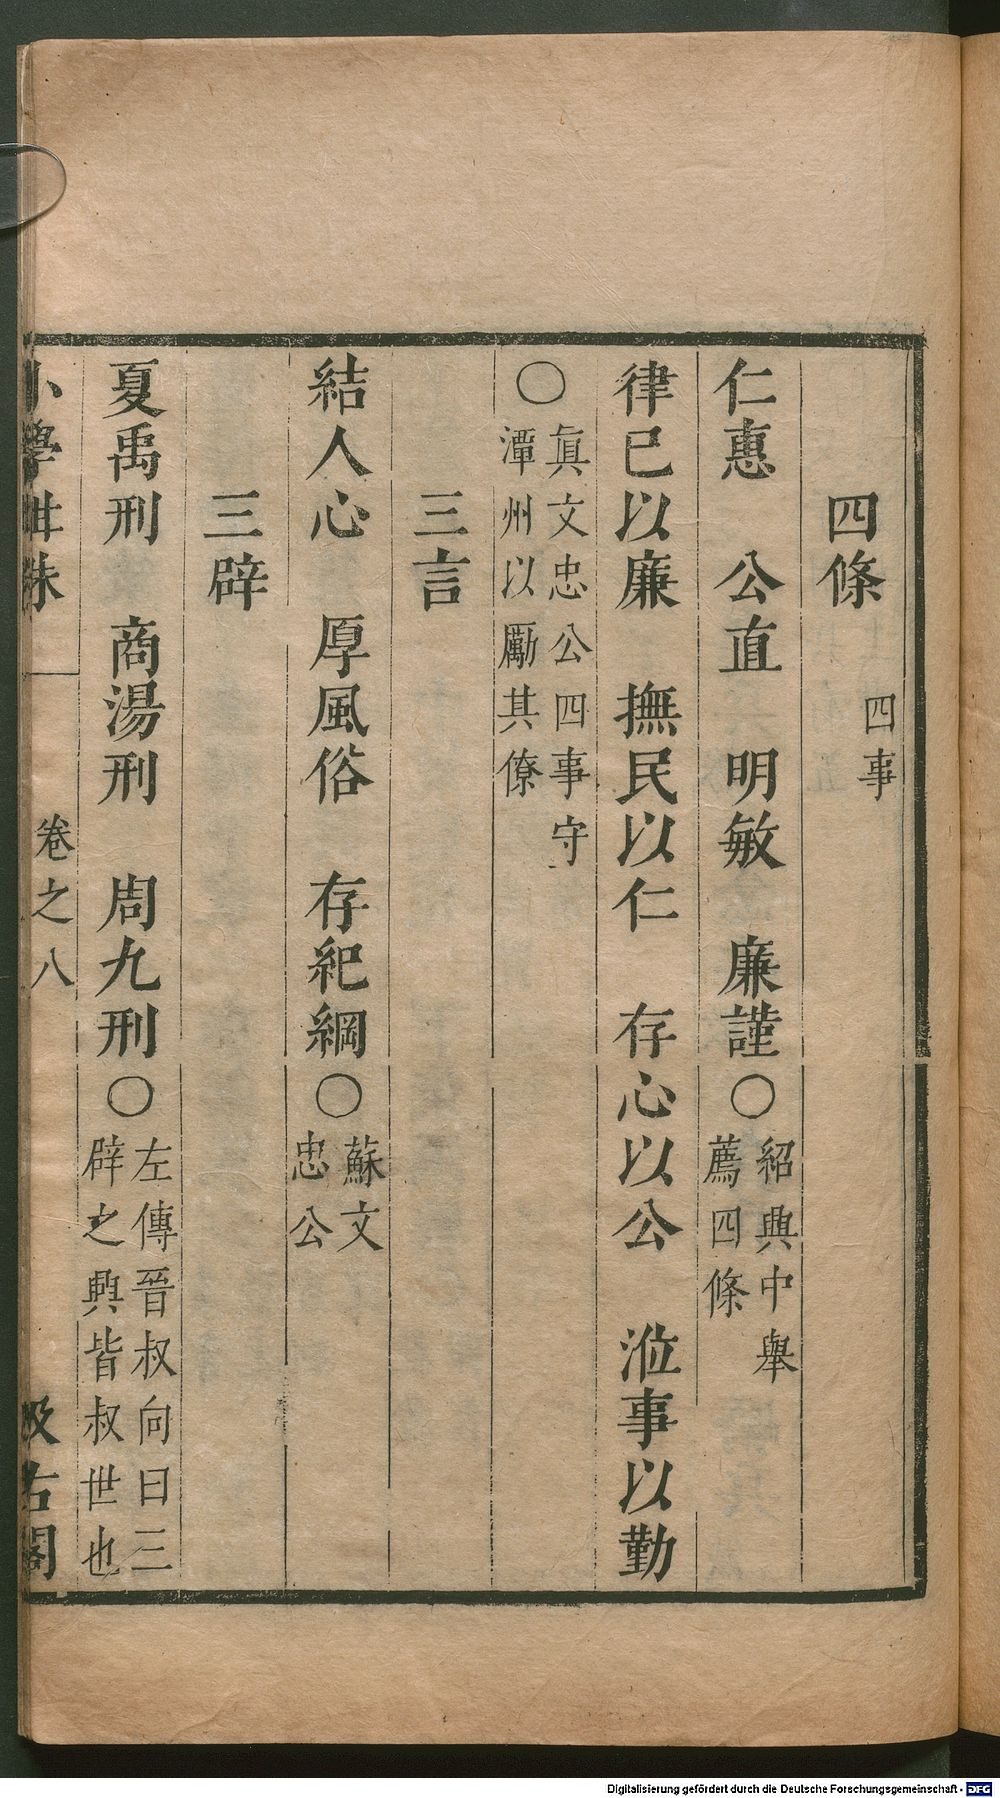 四條 四事
仁惠 公直 明敏 廉謹○紹興中舉薦四條
律已以廉 撫民以仁 存心以公 涖事以勤
○眞文忠公四事守潭州以勵其僚
三言
結人心 厚風俗 存紀綱○蘇文忠公
三辟
夏禹刑 商湯刑 周九刑○左傳晉叔向曰三辟之興皆叔世也
小學紺珠 卷之八 汲古閣
Digitalisierung gefördert durch die Deutsche Forschungsgemeinschaft - DFG